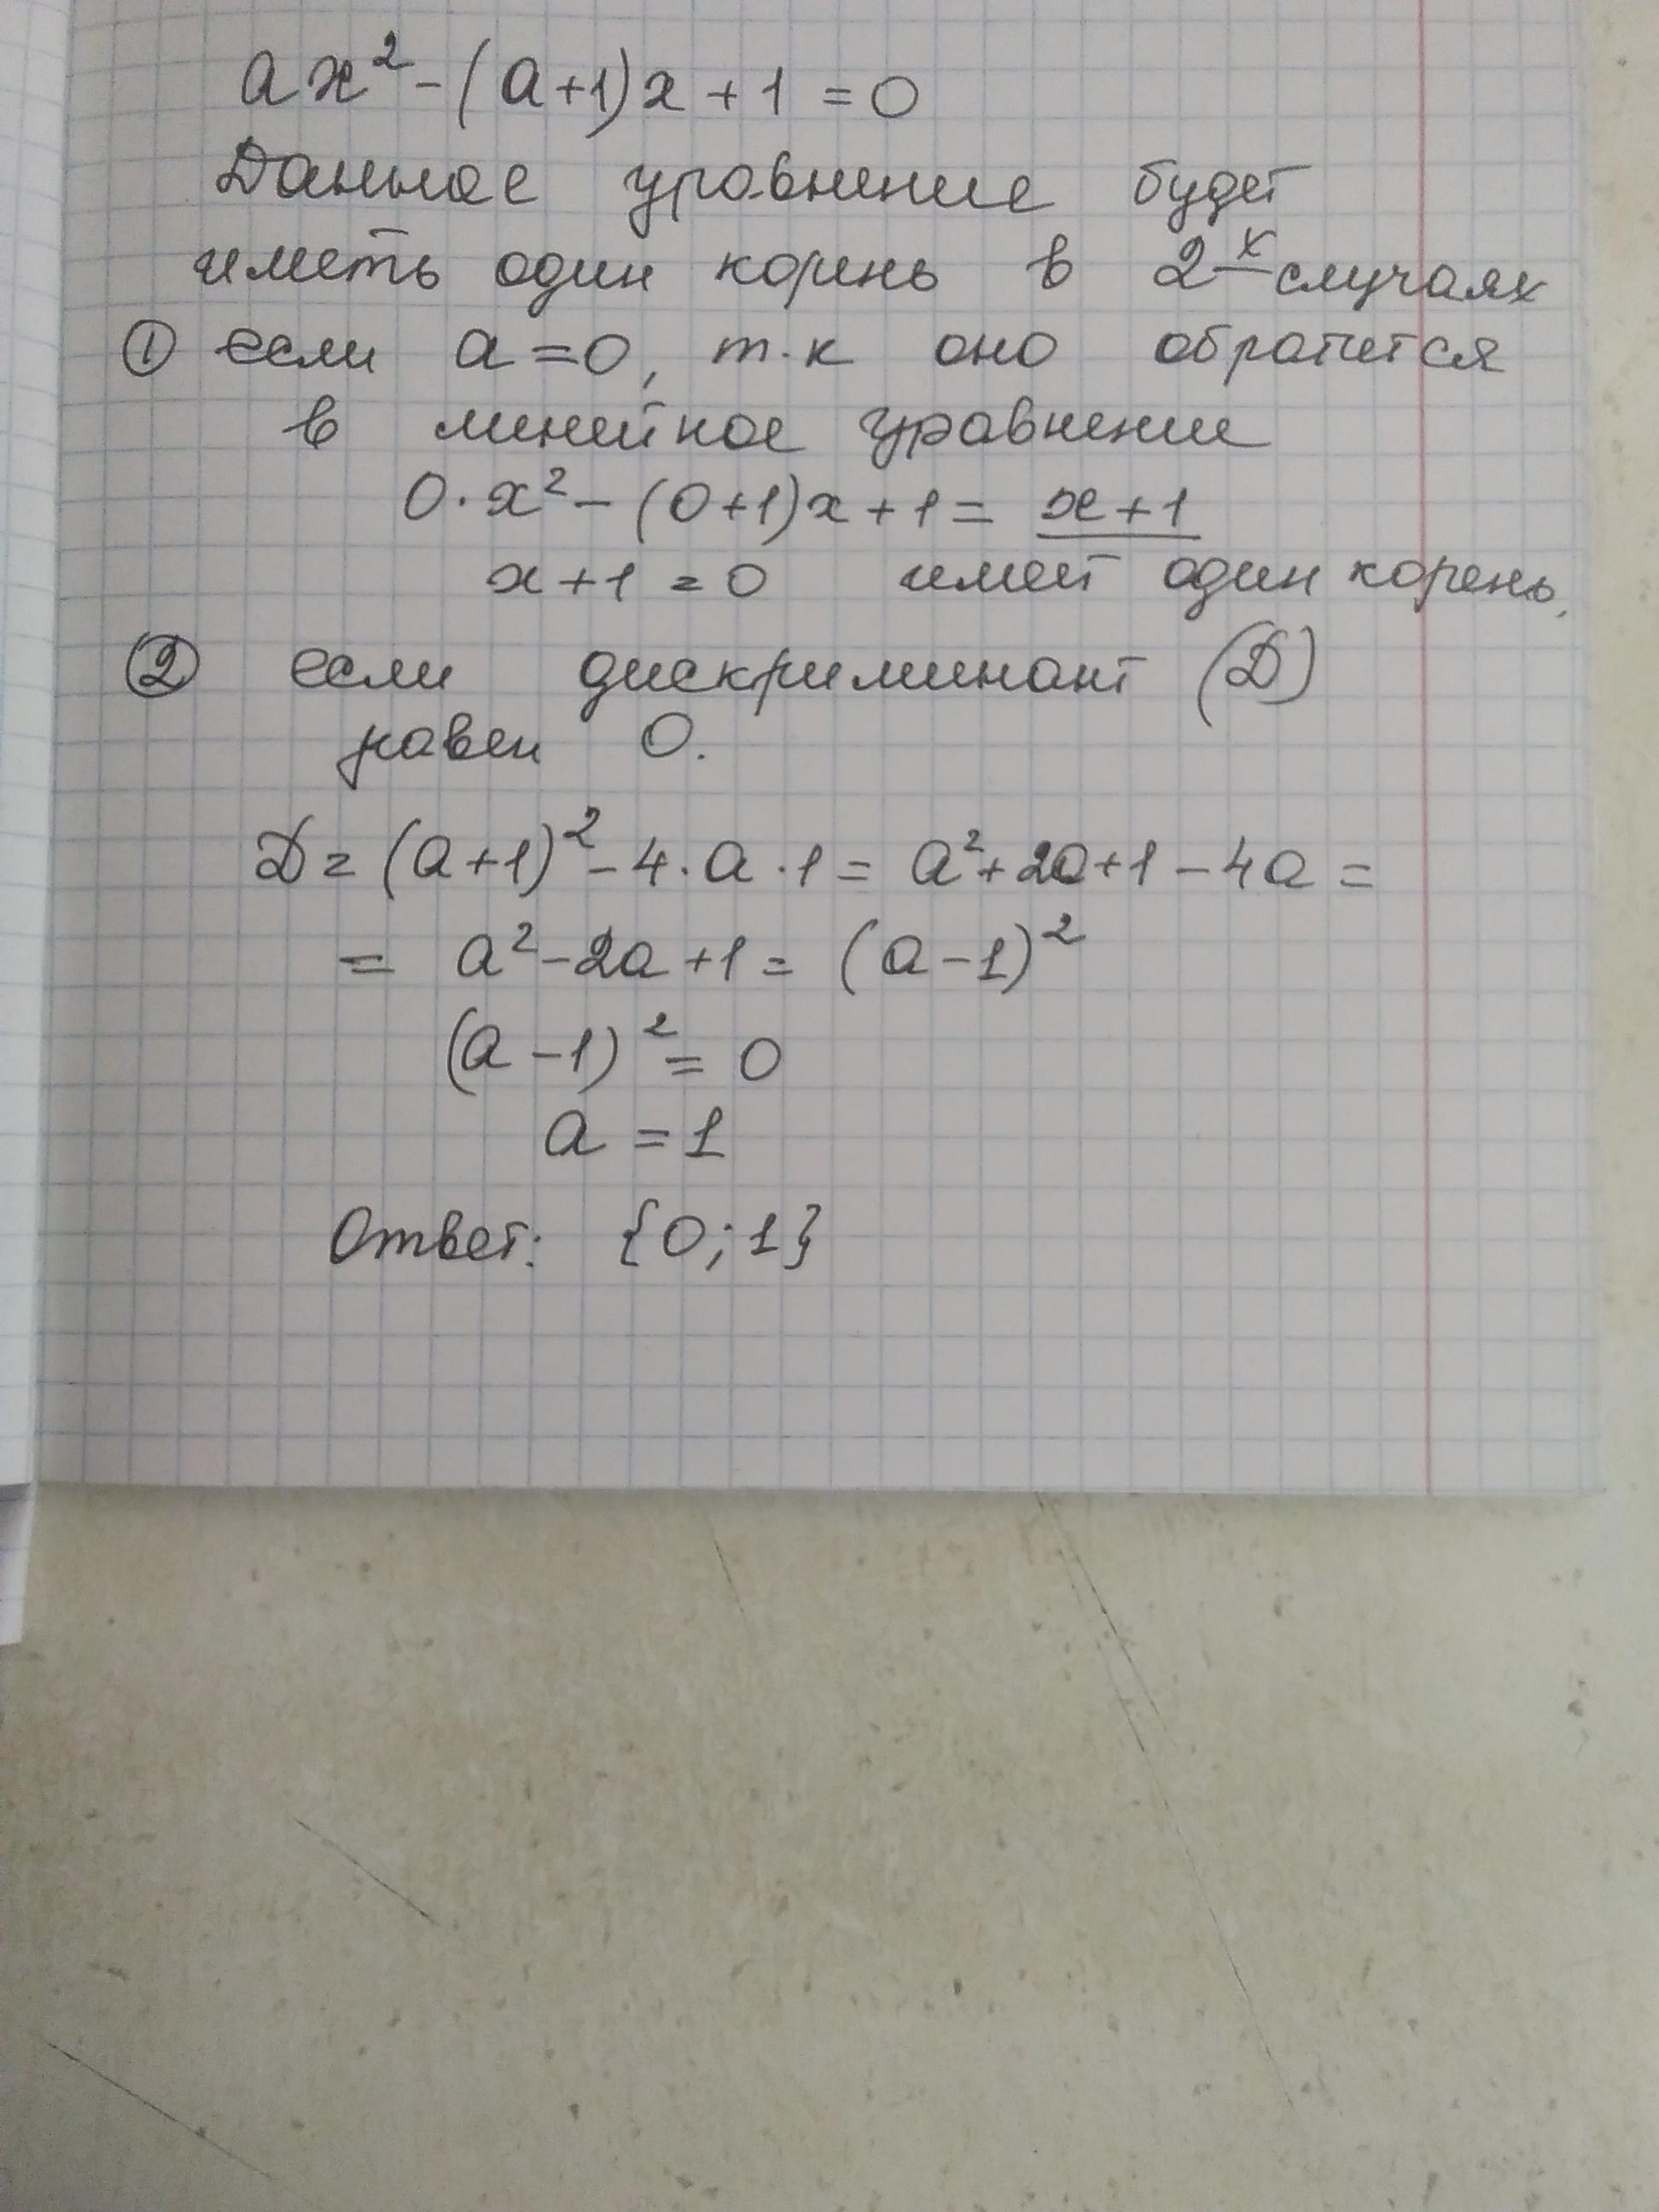 ax² - (a+1)x + 1 = 0
Данное уравнение будет
иметь один корень в 2-х случаях
① если a = 0, т.к оно обратится
в линейное уравнение
0·x² - (0+1)x + 1 = x + 1
x + 1 = 0 имеет один корень.
② если дискриминант (D)
равен 0.
D = (a+1)² - 4·a·1 = a² + 2a + 1 - 4a =
= a² - 2a + 1 = (a - 1)²
(a - 1)² = 0
a = 1
Ответ: {0; 1}